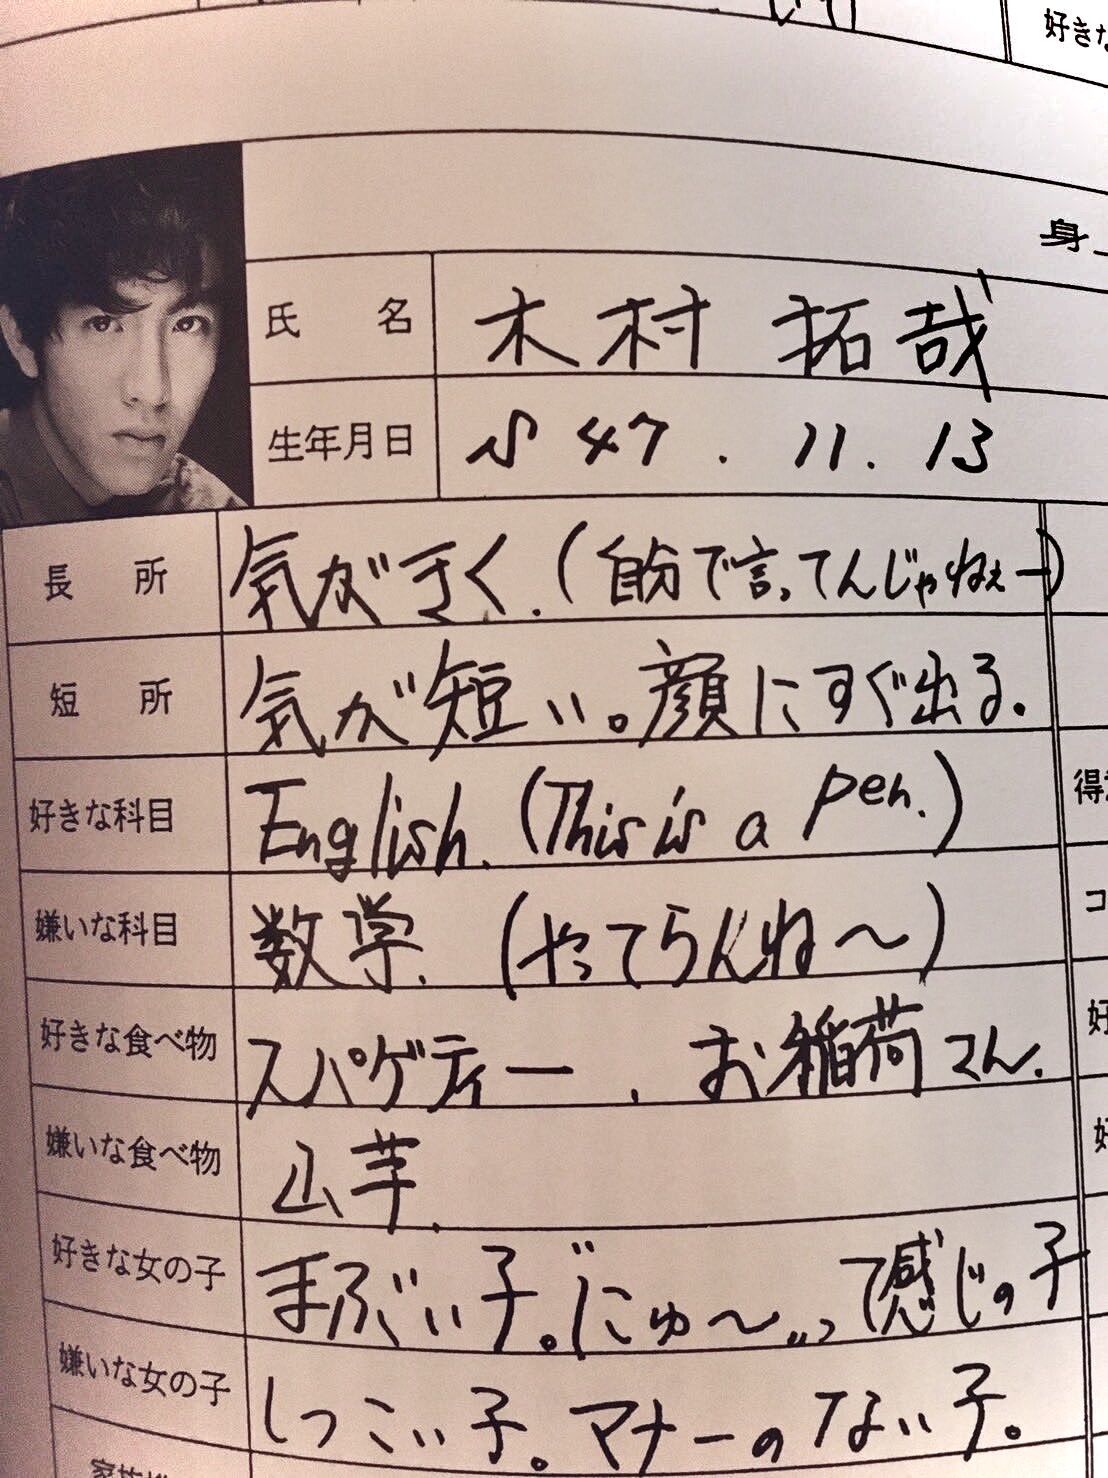 好きな
身上
氏 名 木村 拓哉
生年月日 S 47. 11. 13
長 所 気がきく.(自分で言ってんじゃねぇー)
短 所 気が短い。顔にすぐ出る.
好きな科目 English. (This is a pen.)
嫌いな科目 数学. (やってらんね〜)
得意
好きな食べ物 スパゲティー . お稲荷さん.
コ
嫌いな食べ物 山芋.
好
好きな女の子 まぶい子。にゅ〜って感じの子
好
嫌いな女の子 しつこい子。マナーのない子。